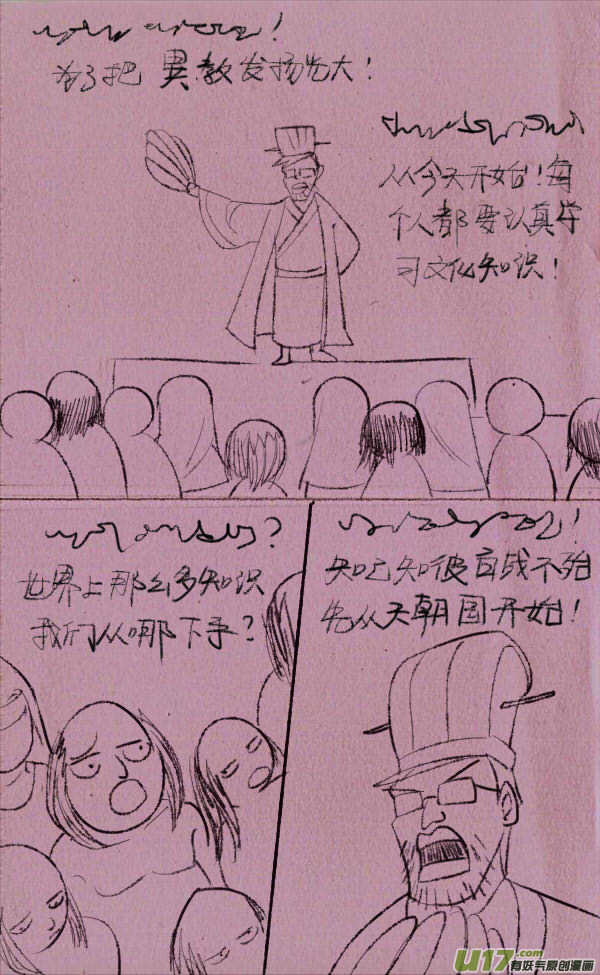 为了把 異教发扬光大!
从今天开始!每
个人都要认真学
习文化知识!
世界上那么多知识
我们从哪下手?
知己知彼百战不殆
先从天朝国开始!
U17.com
有妖气原创漫画